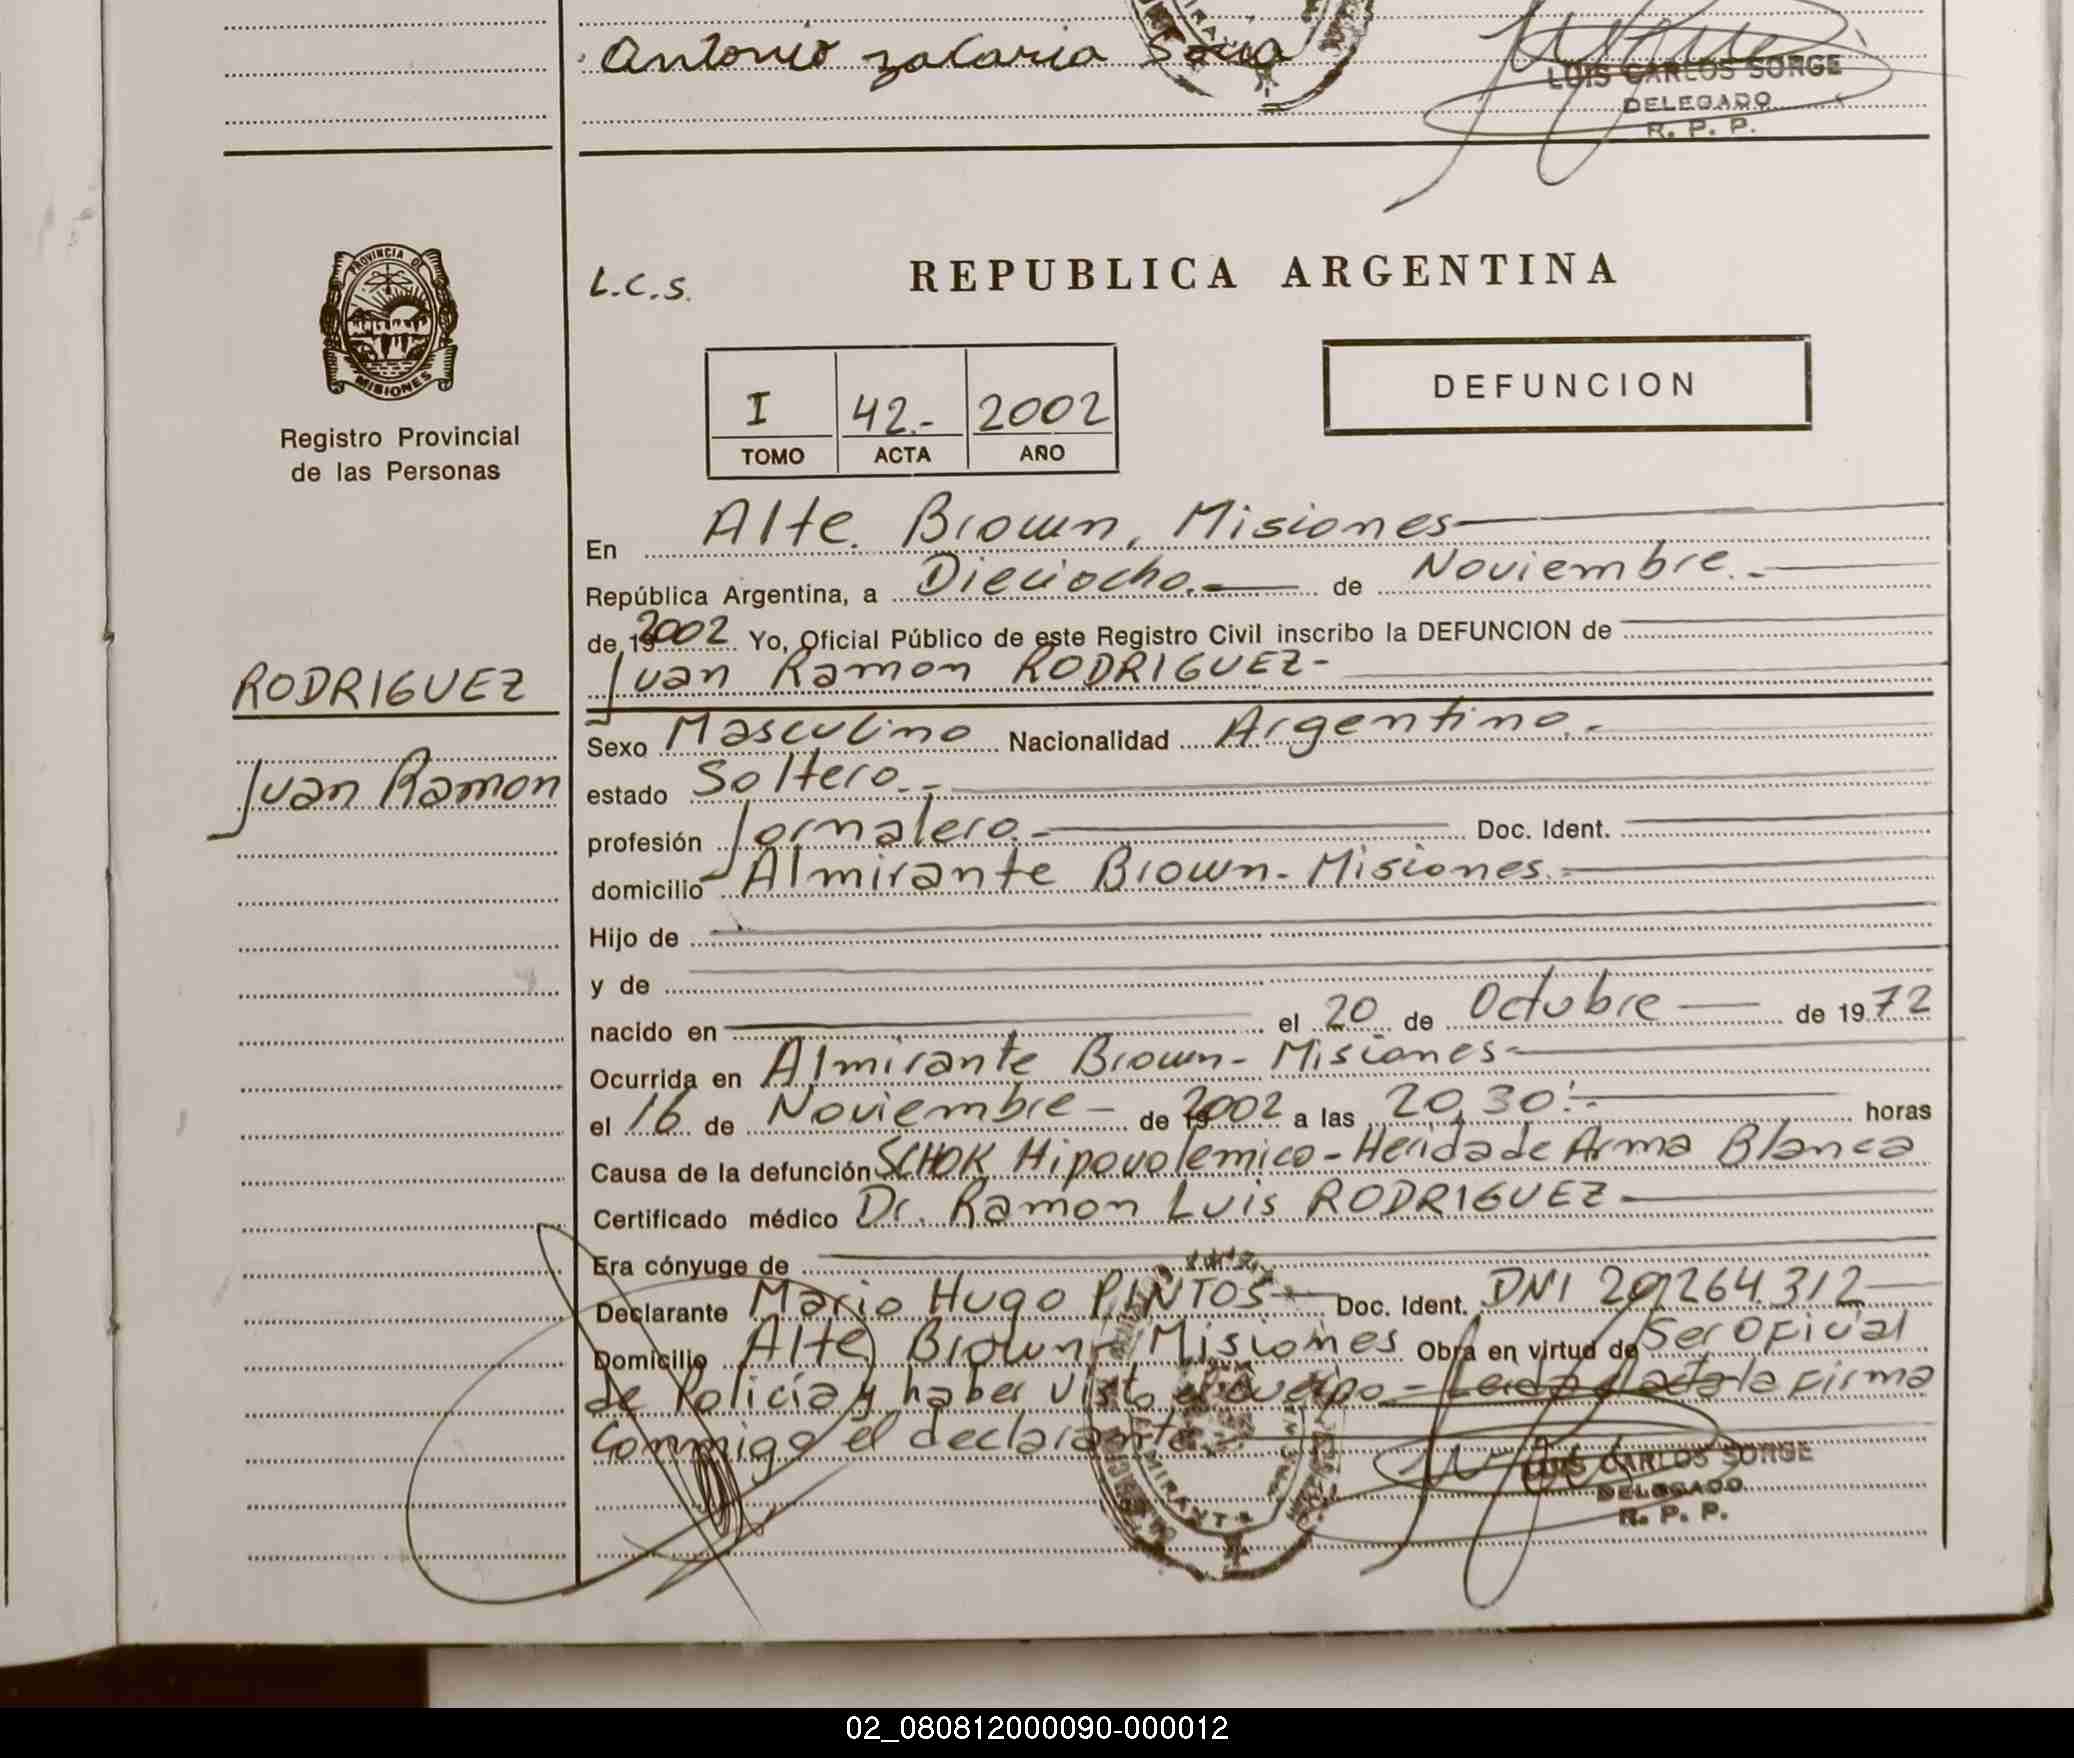 Antonio zacaria Soria
LUIS CARLOS SORGE
DELEGADO
R. P. P.
PROVINCIA DE
MISIONES
Registro Provincial
de las Personas
L.C.S.
REPUBLICA ARGENTINA
I 42.- 2002
TOMO ACTA AÑO
DEFUNCION
En Alte. Brown, Misiones
República Argentina, a Dieciocho.- de Noviembre.-
de 192002 Yo, Oficial Público de este Registro Civil inscribo la DEFUNCION de
Juan Ramon RODRIGUEZ-
RODRIGUEZ
Juan Ramon
Sexo Masculino Nacionalidad Argentino.-
estado Soltero.-
profesión Jornalero.- Doc. Ident.
domicilio Almirante Brown-Misiones.-
Hijo de
y de
nacido en el 20 de Octubre de 1972
Ocurrida en Almirante Brown-Misiones-
el 16 de Noviembre- de 192002 a las 20,30:- horas
Causa de la defunción SCHOK Hipovolemico-Herida de Arma Blanca
Certificado médico Dr. Ramon Luis RODRIGUEZ-
Era cónyuge de
Declarante Mario Hugo PINTOS- Doc. Ident. DNI 20,264.312-
Domicilio Alte. Brown-Misiones Obra en virtud de Ser Oficial
de Policía y haber visto el cuerpo-Leida el acta la firma
Conmigo el declarante-
LUIS CARLOS SORGE
DELEGADO
R. P. P.
02_080812000090-000012